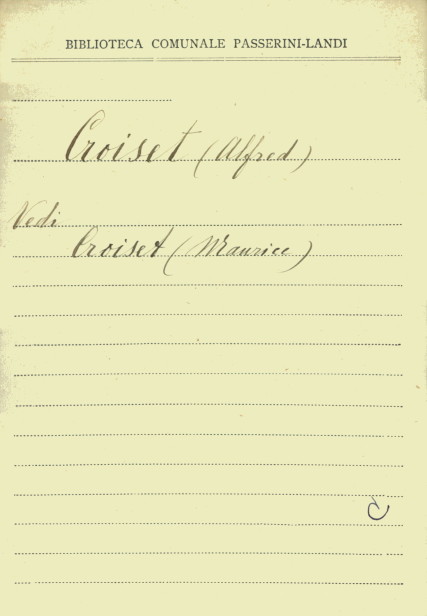 BIBLIOTECA COMUNALE PASSERINI-LANDI
Croiset (Alfred)
Vedi
Croiset (Maurice)
C